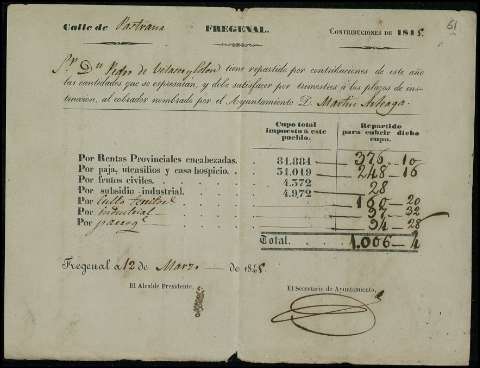 Calle de Pastrana FREGENAL. CONTRIBUCIONES DE 1845.
61
Sr. Dn Pedro de Velasco y tiene repartido por contribuciones de este año
las cantidades que se expresarán, y debe satisfacer por trimestres á los plazos de ins-
truccion, al cobrador nombrado por el Ayuntamiento D. Martin Arteaga.
Cupo total impuesto á este pueblo. Repartido para cubrir dicho cupo.
Por Rentas Provinciales encabezadas. 84.884 376 - 10
Por paja, utensilios y casa hospicio. 51.019 248 - 16
Por frutos civiles. 4.572 28
Por subsidio industrial. 4.972
Por Culto territorl 160 - 20
Por industrial 57 - 32
Por parroql 34 - 28
Total. 1.006 - 4
Fregenal á 12 de Marzo de 1845
El Alcalde Presidente. El Secretario de Ayuntamiento.